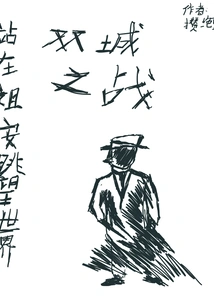 双城
之战
作者:
站在祖安眺望世界